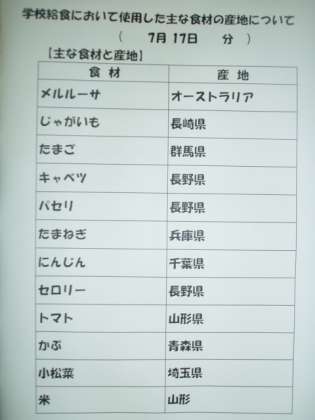 学校給食において使用した主な食材の産地について
（　7月 17日　分　）
【主な食材と産地】
食 材　産 地
メルルーサ　オーストラリア
じゃがいも　長崎県
たまご　群馬県
キャベツ　長野県
パセリ　長野県
たまねぎ　兵庫県
にんじん　千葉県
セロリー　長野県
トマト　山形県
かぶ　青森県
小松菜　埼玉県
米　山形